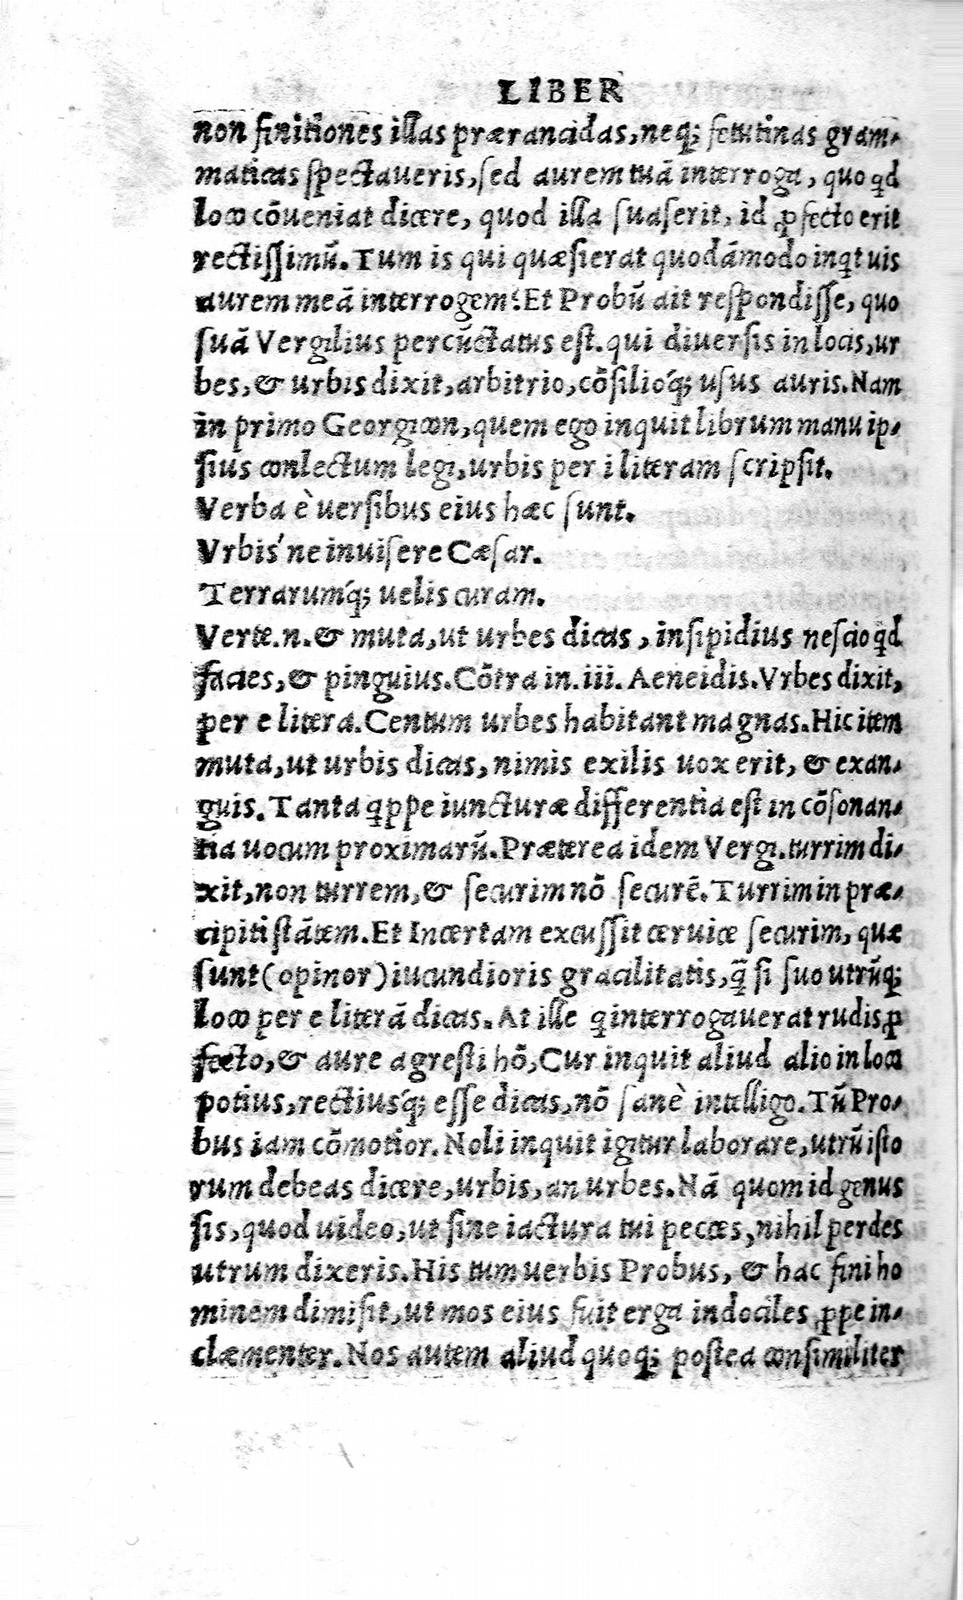 LIBER
non finitiones illas prærancidas, neq; fetutinas gram-
maticas spectaueris, sed aurem tuã interroga, quo qd
loco cõueniat dicere, quod illa suaserit, id ꝓfecto erit
rectissimũ. Tum is qui quæsierat quodãmodo inqt uis
aurem meã interrogem? Et Probũ ait respondisse, quo
suã Vergilius percũctatus est. qui diuersis in locis, ur
bes, & urbis dixit, arbitrio, cõsilioq́; usus auris. Nam
in primo Georgicon, quem ego inquit librum manu ip-
sius conlectum legi, urbis per i literam scripsit.
Verba è uersibus eius hæc sunt.
Vrbis'ne inuisere Cæsar.
Terrarumq́; uelis curam.
Verte.n.& muta, ut urbes dicas, insipidius nescio qd
facies, & pinguius. Cõtra in.iii. Aeneidis. Vrbes dixit,
per e litera. Centum urbes habitant magnas. Hic item
muta, ut urbis dicas, nimis exilis uox erit, & exan-
guis. Tanta qppe iuncturæ differentia est in cõsonan-
tia uocum proximarũ. Præterea idem Vergi. turrim di-
xit, non turrem, & securim nõ securẽ. Turrim in præ-
cipiti stãtem. Et Incertam excussit ceruice securim, quæ
sunt (opinor) iucundioris gracilitatis, q̃ si suo utrũq;
loco per e literã dicas. At ille q interrogauerat rudis ꝓ
fecto, & aure agresti hõ, Cur inquit aliud alio in loco
potius, rectiusq́; esse dicas, nõ sanè intelligo. Tũ Pro-
bus iam cõmotior. Noli inquit igitur laborare, utrũ isto
rum debeas dicere, urbis, an urbes. Nã quom id genus
sis, quod uideo, ut sine iactura tui pecces, nihil perdes
utrum dixeris. His tum uerbis Probus, & hac fini ho
minem dimisit, ut mos eius fuit erga indociles ꝓpe in-
clæmenter. Nos autem aliud quoq; postea consimiliter